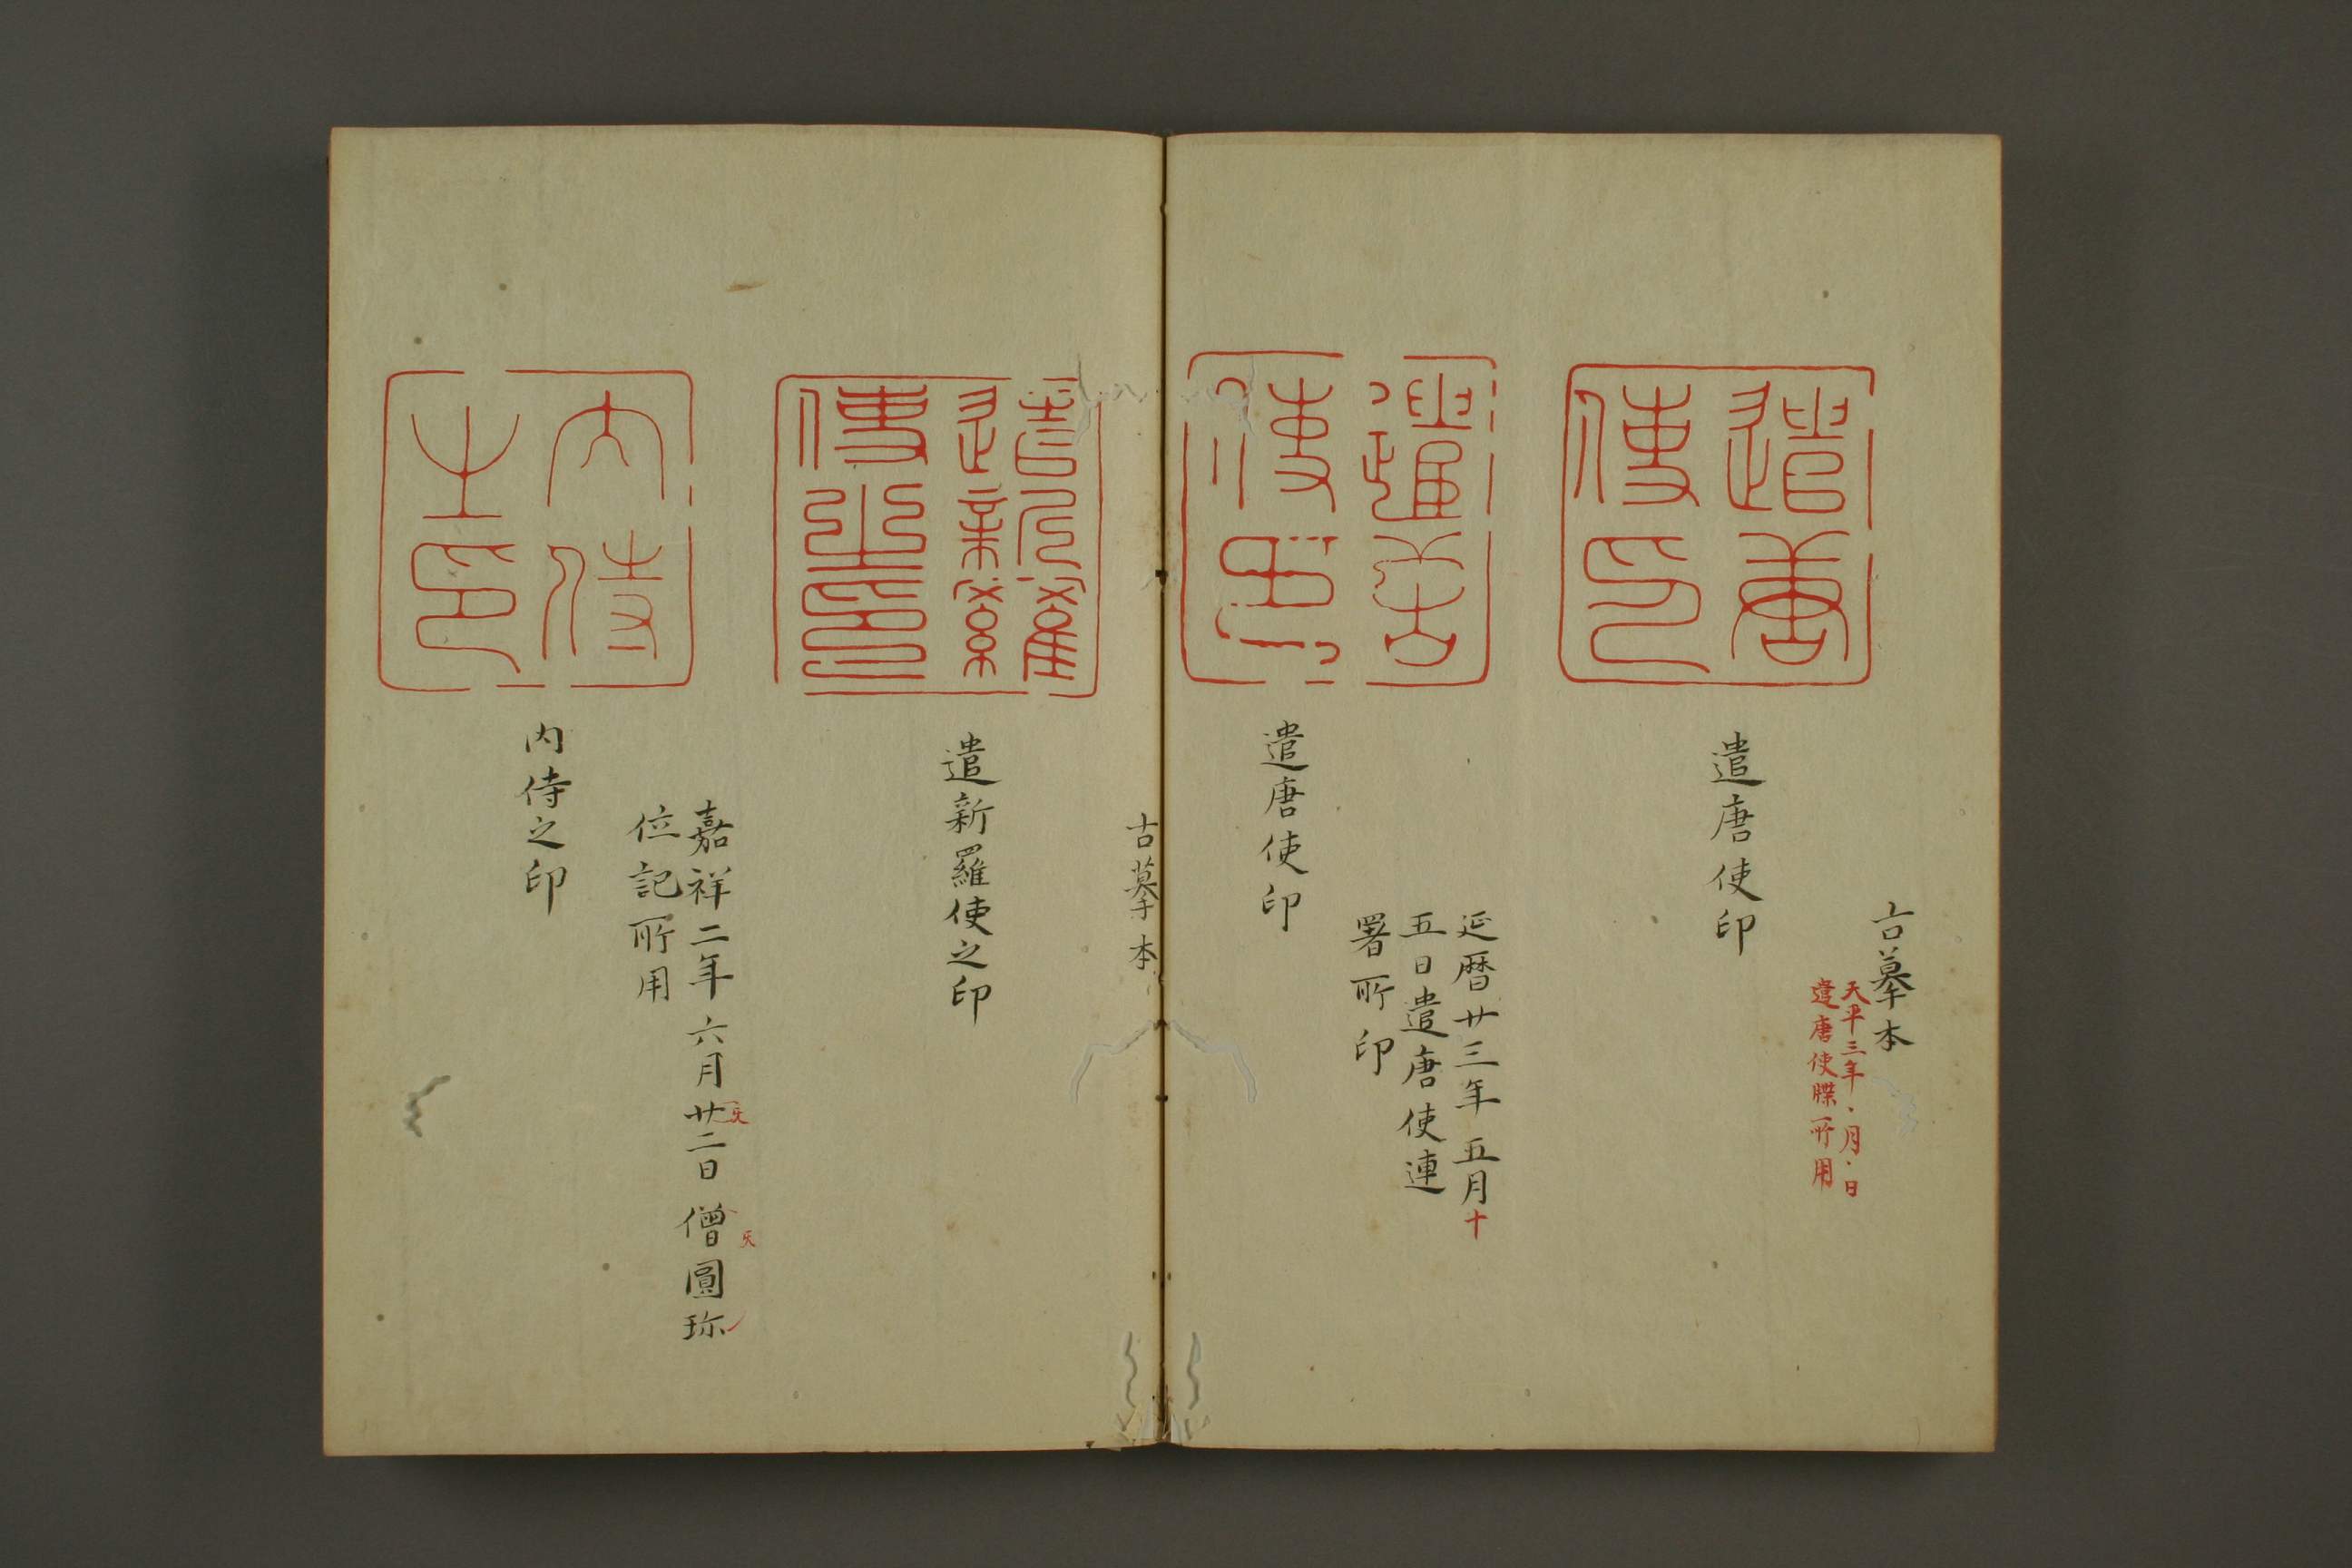 古摹本
天平三年、月、日
遣唐使牒所用
遣唐
使印
遣唐使印
延暦廿三年五月十
五日遣唐使連
署所印
遣唐
使印
遣唐使印
古摹本
遣新羅
使之印
遣新羅使之印
嘉祥二年六月廿二日僧圓珎
位記所用
内侍
之印
内侍之印